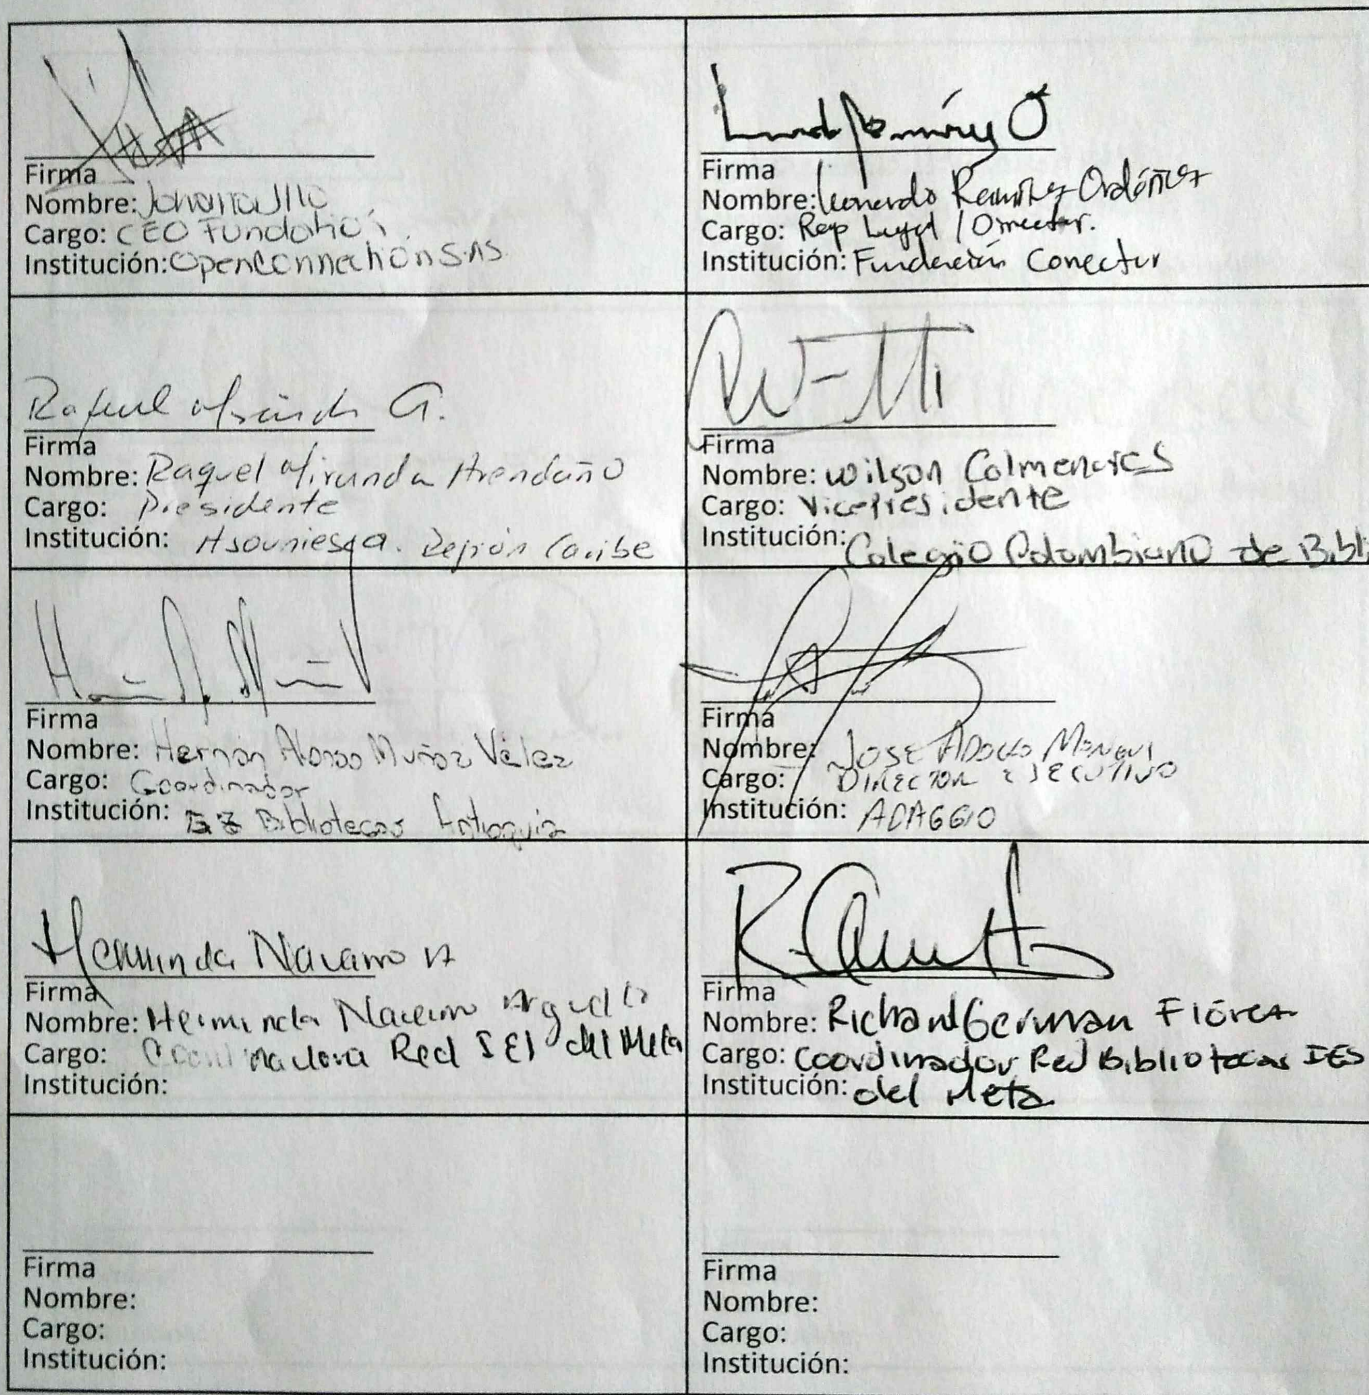 Firma
Nombre: Johana
Cargo: CEO Fundatión
Institución: OpenConnection SAS.
Firma
Nombre: Leonardo Ramírez Ordóñez
Cargo: Rep Legal / Director.
Institución: Fundación Conector
Rafael Miranda G.
Firma
Nombre: Raquel Miranda Avendaño
Cargo: Presidente
Institución: Asouniesca. Región Caribe
Firma
Nombre: Wilson Colmenares
Cargo: Vicepresidente
Institución: Colegio Colombiano de Bibli
Firma
Nombre: Hernán Alonso Muñoz Vélez
Cargo: Coordinador
Institución: Bibliotecas Antioquia
Firma
Nombre: JOSE ADOLFO
Cargo: DIRECTOR EJECUTIVO
Institución: ADAGGIO
Herminda Navarro A
Firma
Nombre: Herminda Navarro Arguello
Cargo: Coordinadora Red IES del Meta
Institución:
Firma
Nombre: Richard German Flórez
Cargo: Coordinador Red Bibliotecas IES
Institución: del Meta
Firma
Nombre:
Cargo:
Institución:
Firma
Nombre:
Cargo:
Institución: